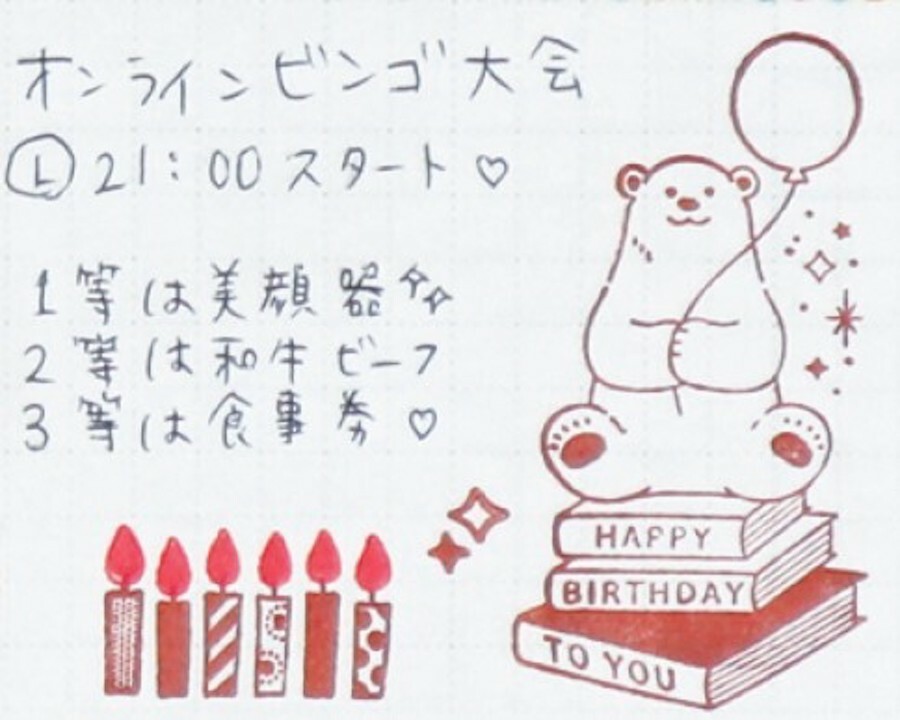 オンラインビンゴ大会
21:00 スタート♡
1等は美顔器
2等は和牛ビーフ
3等は食事券♡
HAPPY
BIRTHDAY
TO YOU